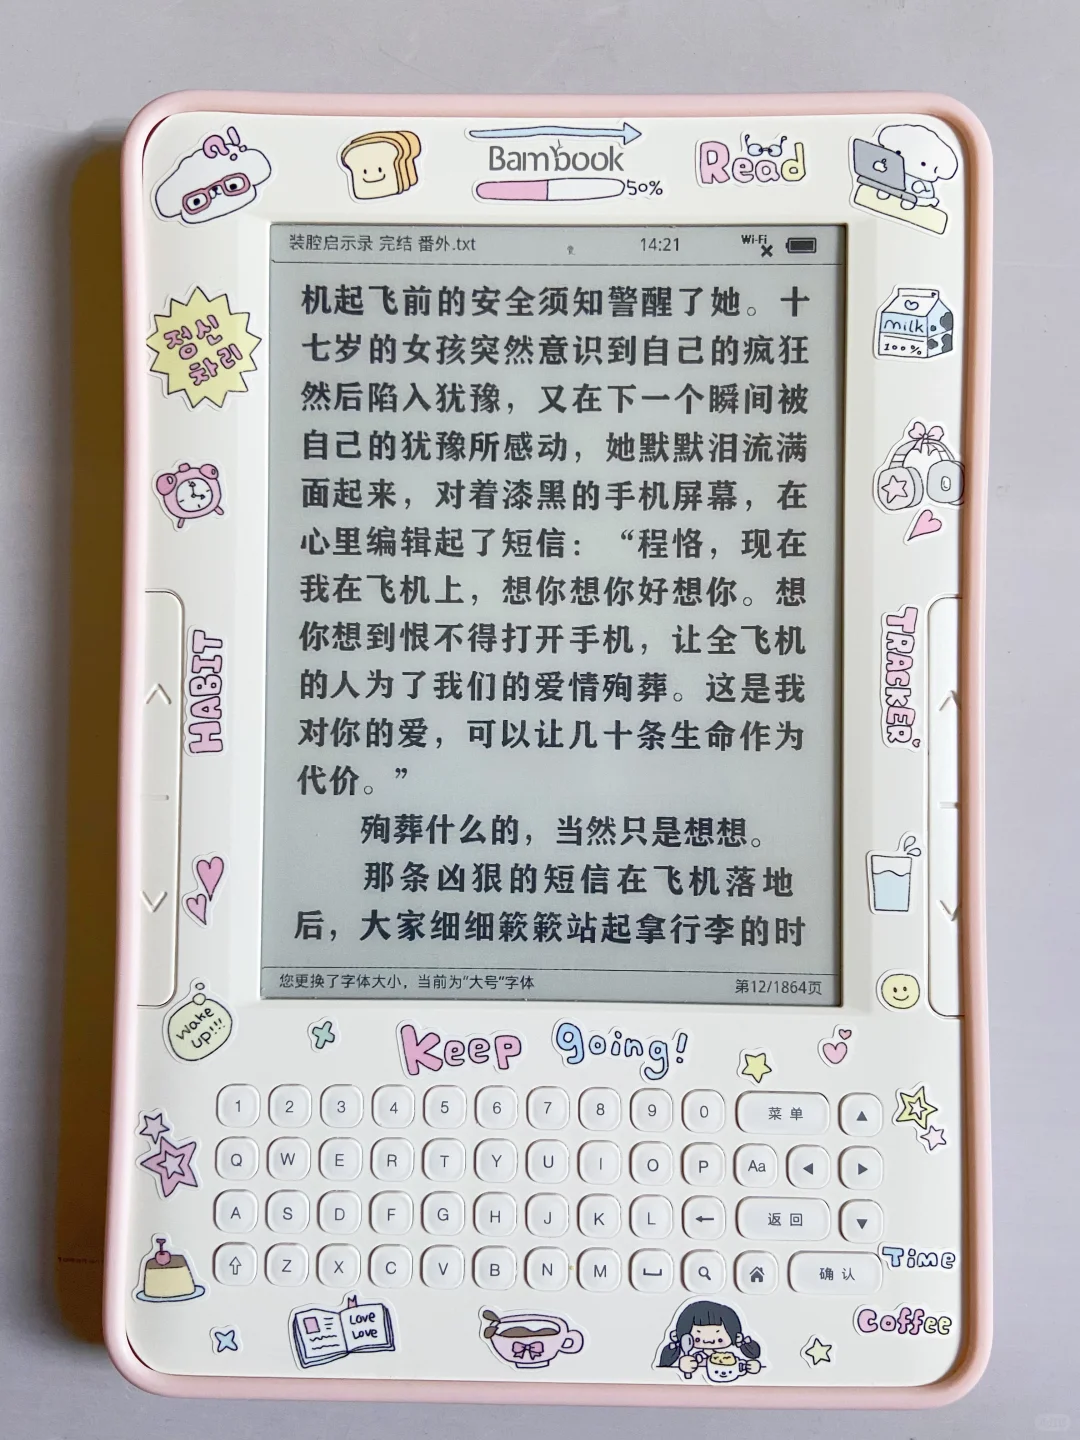 ?!
Bambook
50%
Read
装腔启示录 完结 番外.txt 14:21 Wi-Fi
机起飞前的安全须知警醒了她。十
七岁的女孩突然意识到自己的疯狂
然后陷入犹豫，又在下一个瞬间被
自己的犹豫所感动，她默默泪流满
面起来，对着漆黑的手机屏幕，在
心里编辑起了短信：“程恪，现在
我在飞机上，想你想你好想你。想
你想到恨不得打开手机，让全飞机
的人为了我们的爱情殉葬。这是我
对你的爱，可以让几十条生命作为
代价。”
殉葬什么的，当然只是想想。
那条凶狠的短信在飞机落地
后，大家细细簌簌站起拿行李的时
您更换了字体大小，当前为“大号”字体 第12/1864页
정신
차리
milk
100%
HABIT
TRACKER
wake
up!!!
Keep going!
1 2 3 4 5 6 7 8 9 0 菜单 ▲
Q W E R T Y U I O P Aa ◀ ▶
A S D F G H J K L ← 返回 ▼
⇧ Z X C V B N M 确认
Time
Coffee
Love
Love